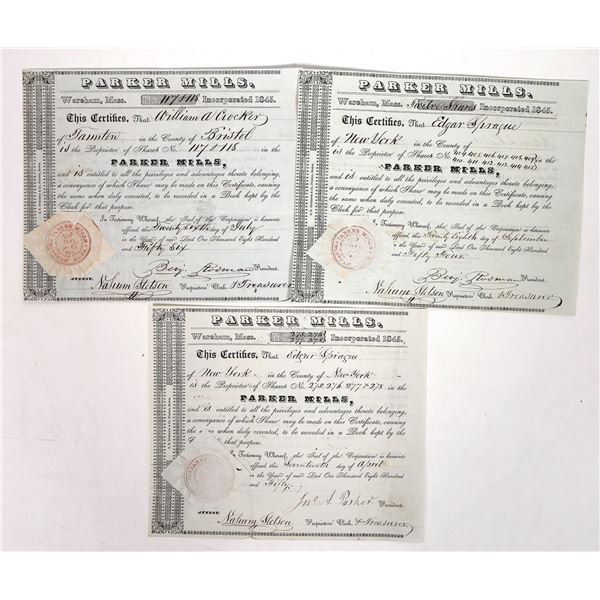 PARKER MILLS,
Wareham, Mass. No. 117 & 118 Incorporated 1845.
This Certifies, That William A Crocker
of Taunton in the County of Bristol
is the Proprietor of Shares No. 117 & 118 in the
PARKER MILLS,
and is entitled to all the privileges and advantages thereto belonging,
a conveyance of which Share may be made on this Certificate, causing
the same when duly executed, to be recorded in a Book kept by the
Clerk for that purpose.
In Testimony Whereof, the Seal of the Corporation is hereunto
affixed, this Twenty sixth day of July
in the Year of our Lord One Thousand Eight Hundred
and Fifty Six
President.
ATTEST.
Nahum Stetson Proprietors' Clerk. & Treasurer
PARKER MILLS,
Wareham, Mass. Twelve Shares Incorporated 1845.
This Certifies, That Edgar Sprague
of New York in the County of
is the Proprietor of Shares No. in the
PARKER MILLS,
and is entitled to all the privileges and advantages thereto belonging,
a conveyance of which Share may be made on this Certificate, causing
the same when duly executed, to be recorded in a Book kept by the
Clerk for that purpose.
In Testimony Whereof, the Seal of the Corporation is hereunto
affixed, this Twenty Eighth day of September
in the Year of our Lord One Thousand Eight Hundred
and Fifty Four
President.
ATTEST.
Nahum Stetson Proprietors' Clerk. & Treasurer
PARKER MILLS,
Wareham, Mass. 275, 276, 277 & 278 Incorporated 1845.
This Certifies, That Edgar Sprague
of New York in the County of New York
is the Proprietor of Shares No. 275, 276, 277 & 278 in the
PARKER MILLS,
and is entitled to all the privileges and advantages thereto belonging,
a conveyance of which Share may be made on this Certificate, causing
the same when duly executed, to be recorded in a Book kept by the
Clerk for that purpose.
In Testimony Whereof, the Seal of the Corporation is hereunto
affixed, this Seventeenth day of April
in the Year of our Lord One Thousand Eight Hundred
and Fifty
Jno A Parker President.
ATTEST.
Nahum Stetson Proprietors' Clerk. & Treasurer